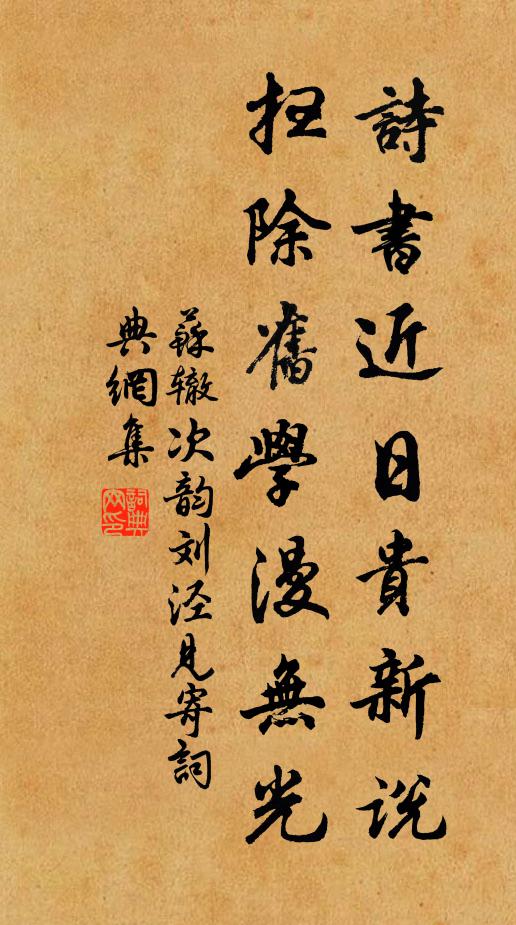 詩書近日貴新説
扫除舊學漫無光
蘇辙次韵刘泾見寄詞
典網集
詞典網印